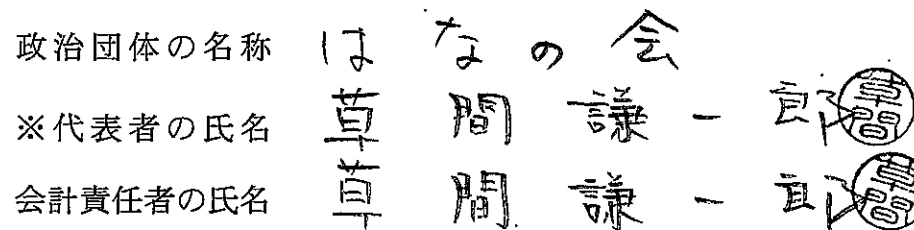 政治団体の名称 はなの会
※代表者の氏名 草間謙一郎 草間
会計責任者の氏名 草間謙一郎 草間